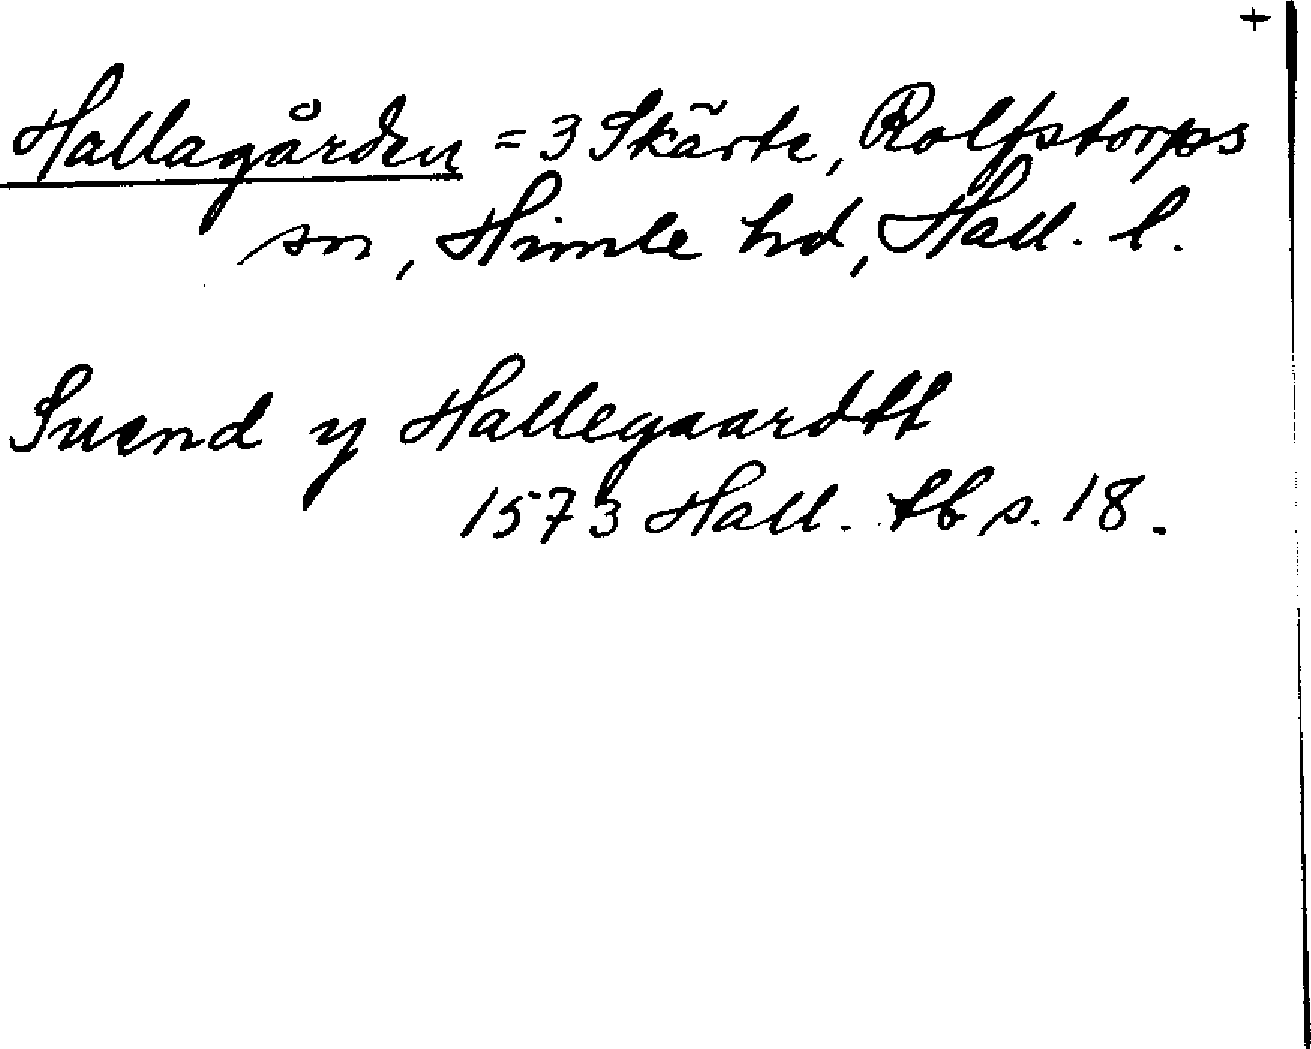 +
Hallagården = 3 Skärte, Rolfstorps
sn, Himle hd, Hall. l.
Suend y Hallegaardtt
1573 Hall. tb s. 18.